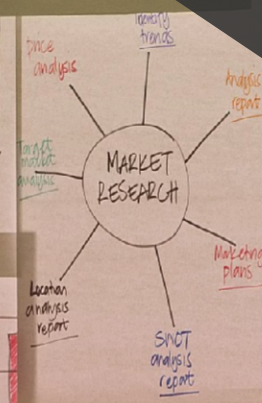 Identify
trends
Price
analysis
Analysis
report
Target
market
analysis
MARKET
RESEARCH
Marketing
plans
Location
analysis
report
SWOT
analysis
report